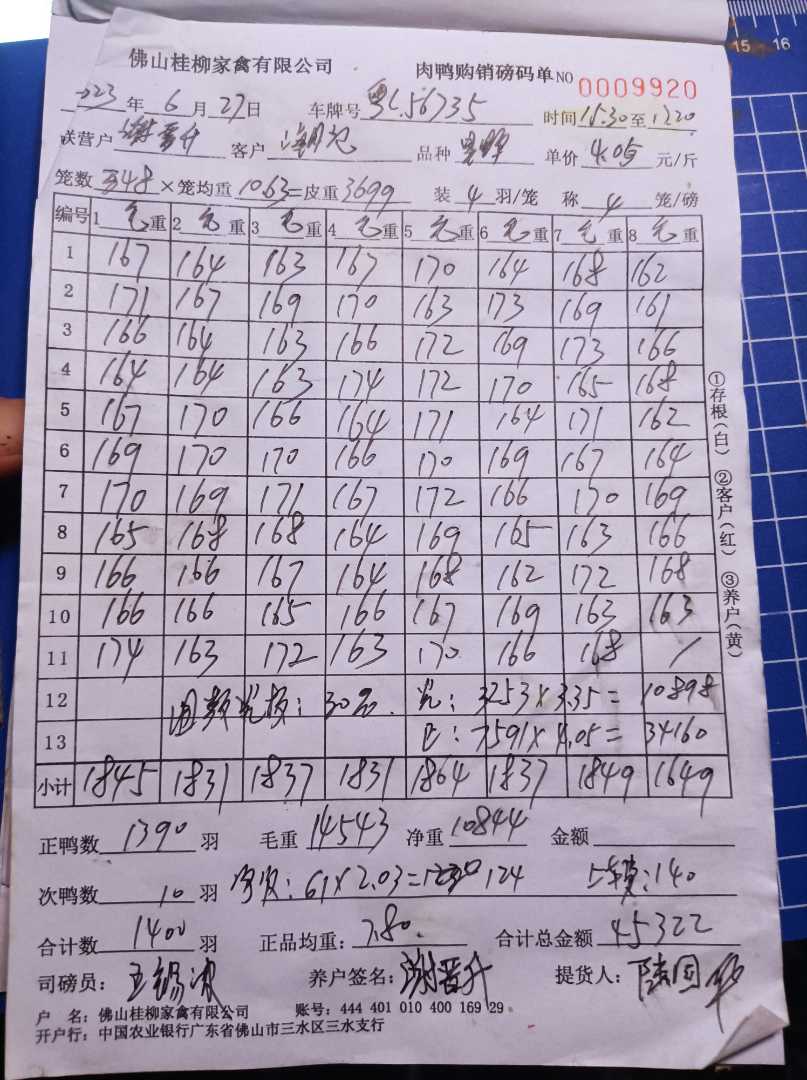 佛山桂柳家禽有限公司 肉鸭购销磅码单 NO 0009920
2023 年 6 月 27 日 车牌号 粤C.56735 时间 15.30 至 1720
送营户 谢晋升 客户 品种 单价 4.05 元/斤
笼数 348 ×笼均重 1063 =皮重 3699 装 4 羽/笼 称 4 笼/磅
编号 1 毛 重 2 毛 重 3 毛 重 4 毛 重 5 毛 重 6 毛 重 7 毛 重 8 毛 重
1 167 164 163 167 170 164 168 162
2 171 167 169 170 163 173 169 161
3 166 164 163 166 172 169 173 166
4 164 164 163 174 172 170 165 168
5 167 170 166 164 171 164 171 162
6 169 170 170 166 170 169 167 164
7 170 169 171 167 172 166 170 169
8 165 168 168 164 169 165 163 166
9 166 166 167 164 168 162 172 168
10 166 166 165 166 167 169 163 163
11 174 163 172 163 170 166 168 /
12 30% : 3253×3.35= 10898
13 : 7591×4.05= 34160
小计 1845 1831 1837 1831 1864 1837 1849 1649
正鸭数 1390 羽 毛重 14543 净重 10844 金额
次鸭数 10 羽 : 61×2.03= 124 上车费:140
合计数 1400 羽 正品均重: 7.80. 合计总金额 45322
司磅员: 王锡冰 养户签名: 谢晋升 提货人: 陆国华
户 名: 佛山桂柳家禽有限公司 账号: 444 401 010 400 169 29
开户行: 中国农业银行广东省佛山市三水区三水支行
①存根(白) ②客户(红) ③养户(黄)
15 16